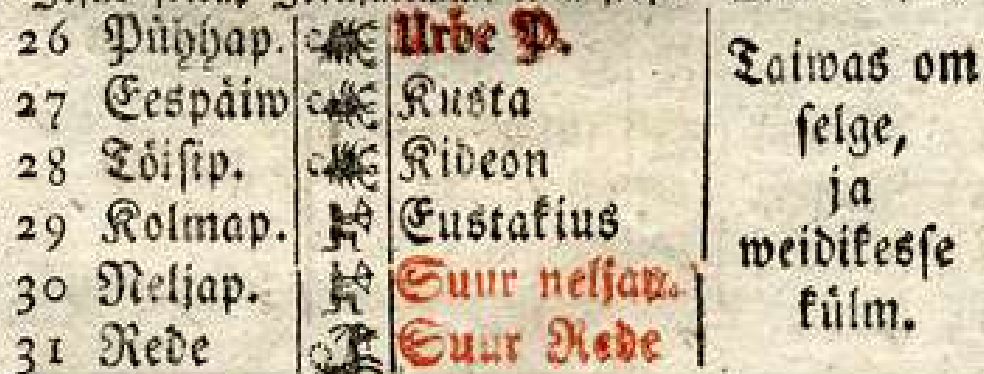 26 Pühhap. Urbe P.
27 Eespäiw Kusta
28 Töisip. Kideon
29 Kolmap. Eustakius
30 Neljap. Suur neljap.
31 Rede Suur Rede
Taiwas om
selge,
ja
weidikesse
külm.